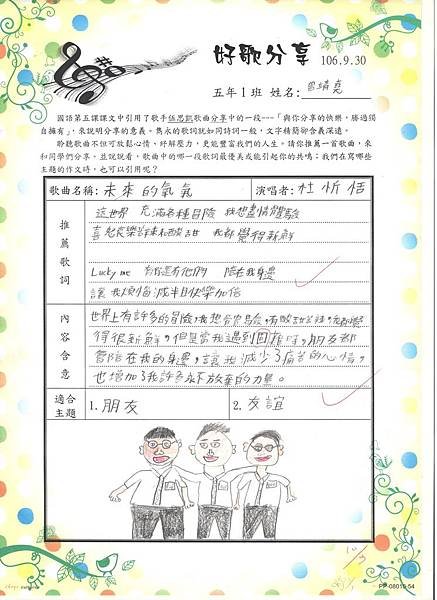 好歌分享 106.9.30
五年1班 姓名:
國語第五課課文中引用了歌手伍思凱歌曲分享中的一段---「與你分享的快樂,勝過獨
自擁有」,來說明分享的意義。雋永的歌詞就如同詩詞一般,文字精簡卻含義深遠。
聆聽歌曲不但可放鬆心情,紓解壓力,更能豐富我們的人生。請你推薦一首歌曲,來
和同學們分享,並說說看,歌曲中的哪一段歌詞最優美或能引起你的共鳴;我們在寫哪些
主題的作文時,也可以引用呢?
歌曲名稱:未來的氧氣 演唱者:杜忻恬
推薦歌詞
這世界 充滿各種冒險 我想盡情體驗
喜怒哀樂 酸甜 我都覺得新鮮
Lucky me 還有他們 陪在我身邊
讓我煩惱減半快樂加倍
內容含意
世界上有許多的冒險,我想 冒險, 我都覺
得很新鮮,但是當我遇到困難時,朋友都
會陪在我的身邊,讓我減少了痛苦的心情,
也增加了我許多永不放棄的力量。
適合主題
1.朋友
2.友誼
10/3
PP-08010-54